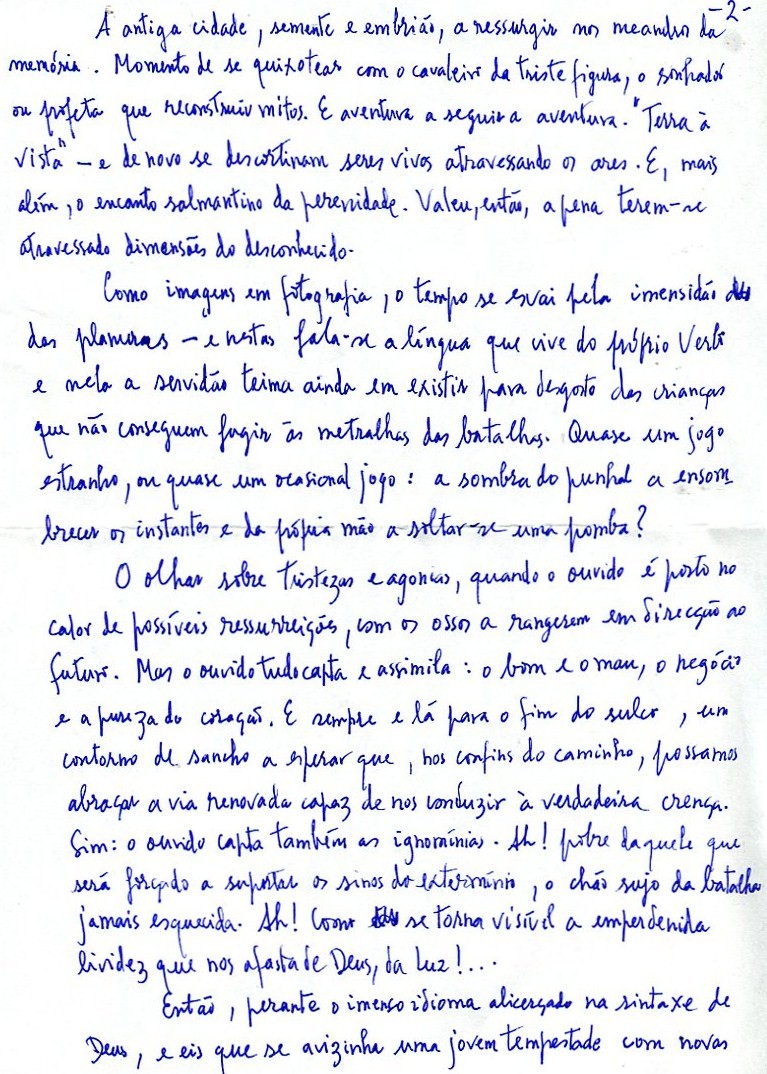 -2-
A antiga cidade, semente e embrião, a ressurgir nos meandros da
memória. Momento de se quixotear com o cavaleiro da triste figura, o sonhador
ou profeta que reconstruiu mitos. E aventura a seguir a aventura. "Terra à
vista" — e de novo se descortinam seres vivos atravessando os ares. E, mais
além, o encanto salmantino da perenidade. Valeu, então, a pena terem-se
atravessado dimensões do desconhecido.
Como imagens em fotografia, o tempo se esvai pela imensidão
das planuras — e nestas fala-se a língua que vive do próprio Verbo
e nela a servidão teima ainda em existir para desgosto das crianças
que não conseguem fugir às metralhas das batalhas. Quase um jogo
estranho, ou quase um ocasional jogo: a sombra do punhal a ensom
brecer os instantes e da própria mão a soltar-se uma pomba?
O olhar sobre tristezas e agonias, quando o ouvido é posto no
calor de possíveis ressurreições, com os ossos a rangerem em direcção ao
futuro. Mas o ouvido tudo capta e assimila: o bom e o mau, o negócio
e a pureza do coração. E sempre e lá para o fim do sulco, um
contorno de sancho a esperar que, nos confins do caminho, possamos
abraçar a via renovada capaz de nos conduzir à verdadeira crença.
Sim: o ouvido capta também as ignomínias. Ah! pobre daquele que
será forçado a suportar os sinos do extermínio, o chão sujo da batalha
jamais esquecida. Ah! Como se torna visível a empedernida
lividez que nos afasta de Deus, da Luz!...
Então, perante o imenso idioma alicerçado na sintaxe de
Deus, e eis que se avizinha uma jovem tempestade com novas